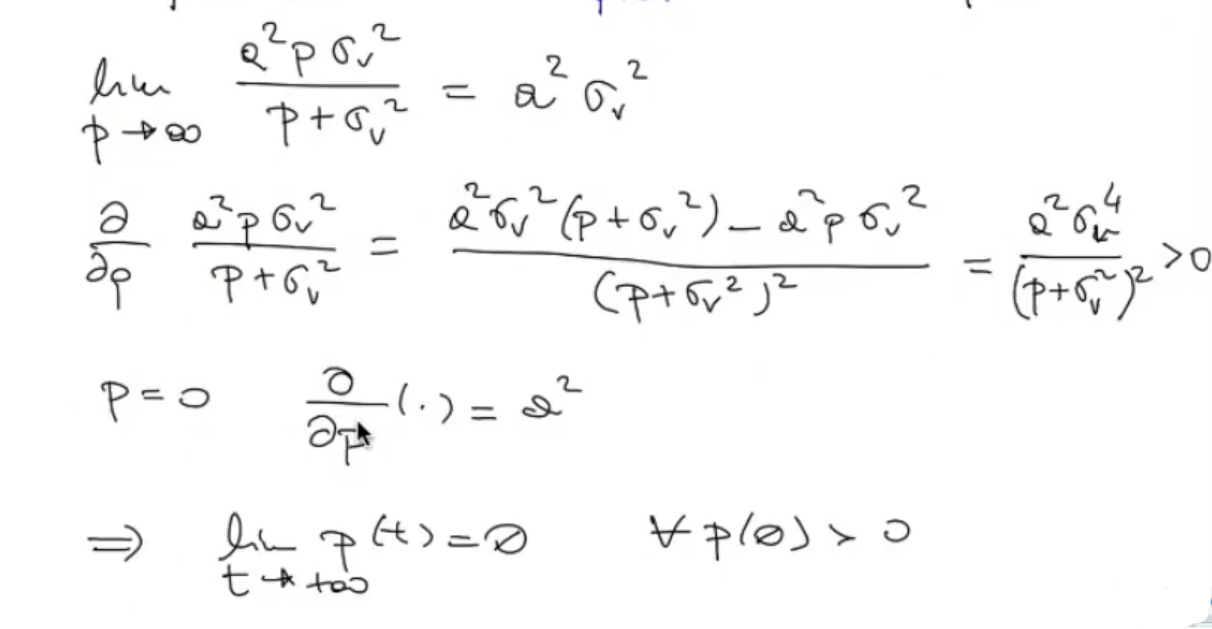 lim p→∞ a²pσᵥ² / (p+σᵥ²) = a²σᵥ²
∂/∂p a²pσᵥ² / (p+σᵥ²) = (a²σᵥ²(p+σᵥ²) − a²pσᵥ²) / (p+σᵥ²)² = a²σᵥ⁴ / (p+σᵥ²)² > 0
p = 0 ∂/∂p (·) = a²
⇒ lim t→+∞ p(t) = 0 ∀ p(0) > 0